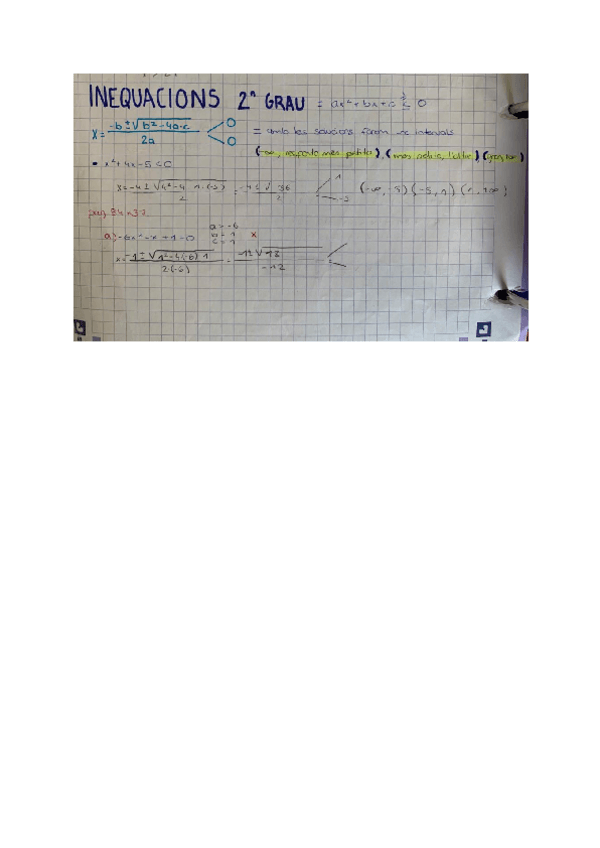 INEQUACIONS 2ⁿ GRAU = ax²+bx+c ≤ 0
x = -b ± √b²-4a·c / 2a 0 0
= amb les solucions farem intervals
(-∞, resposta més petita), (més petita, l'altre) (gran, +∞)
• x²+4x-5≤0
x = -4 ± √4²-4·1·(-5) / 2 = -4 ± √36 / 2 1 -5 (-∞, -5) (-5, 1) (1, +∞)
a) -6x²-x+1=0 a=-6
c=1 x
x = -1 ± √1²-4(-6)·1 / 2·(-6) = / -12 =